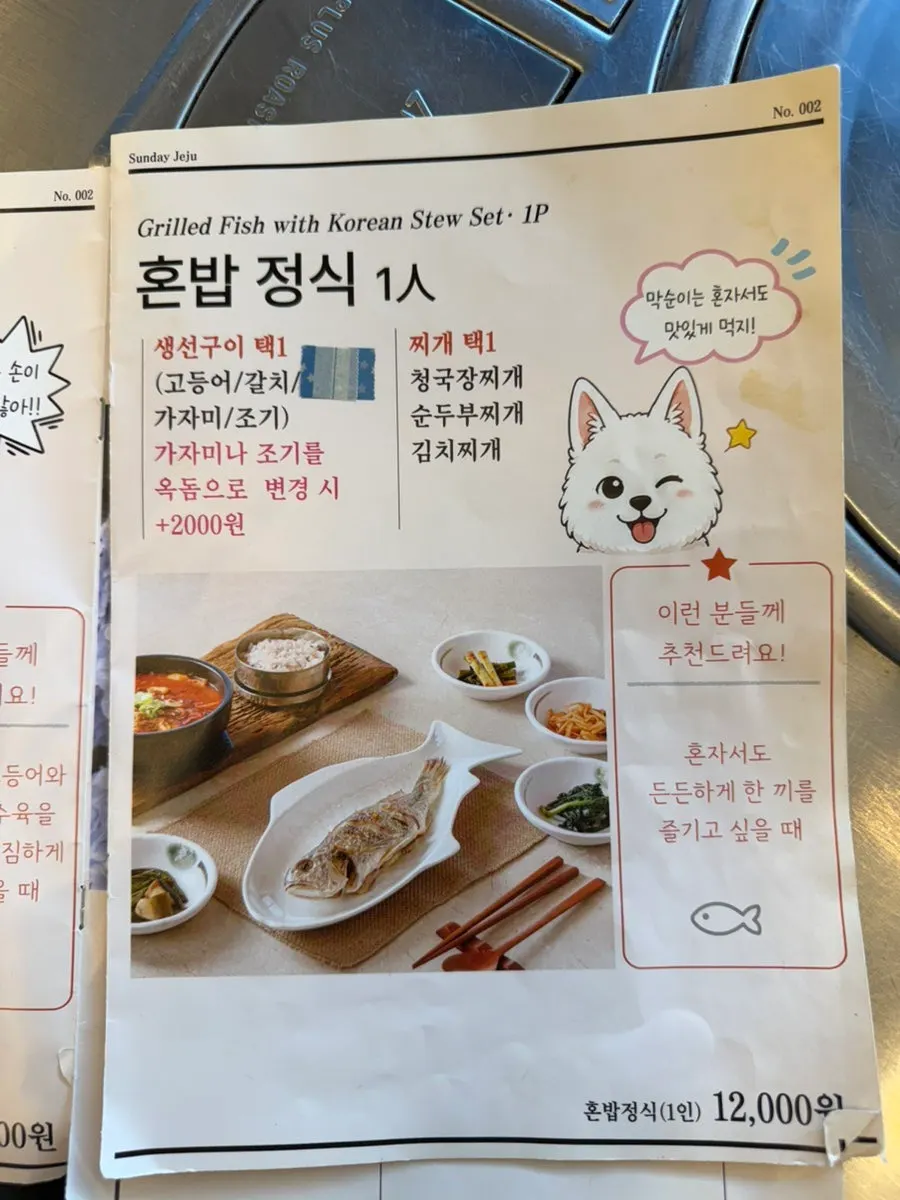 PLUS ROAST
No. 002
손이
않아!!
들께
요!
등어와
수육을
짐하게
을 때
00원
Sunday Jeju
No. 002
Grilled Fish with Korean Stew Set· 1P
혼밥 정식 1人
생선구이 택1
(고등어/갈치/
가자미/조기)
가자미나 조기를
옥돔으로 변경 시
+2000원
찌개 택1
청국장찌개
순두부찌개
김치찌개
막순이는 혼자서도
맛있게 먹지!
이런 분들께
추천드려요!
혼자서도
든든하게 한 끼를
즐기고 싶을 때
혼밥정식(1인) 12,000원